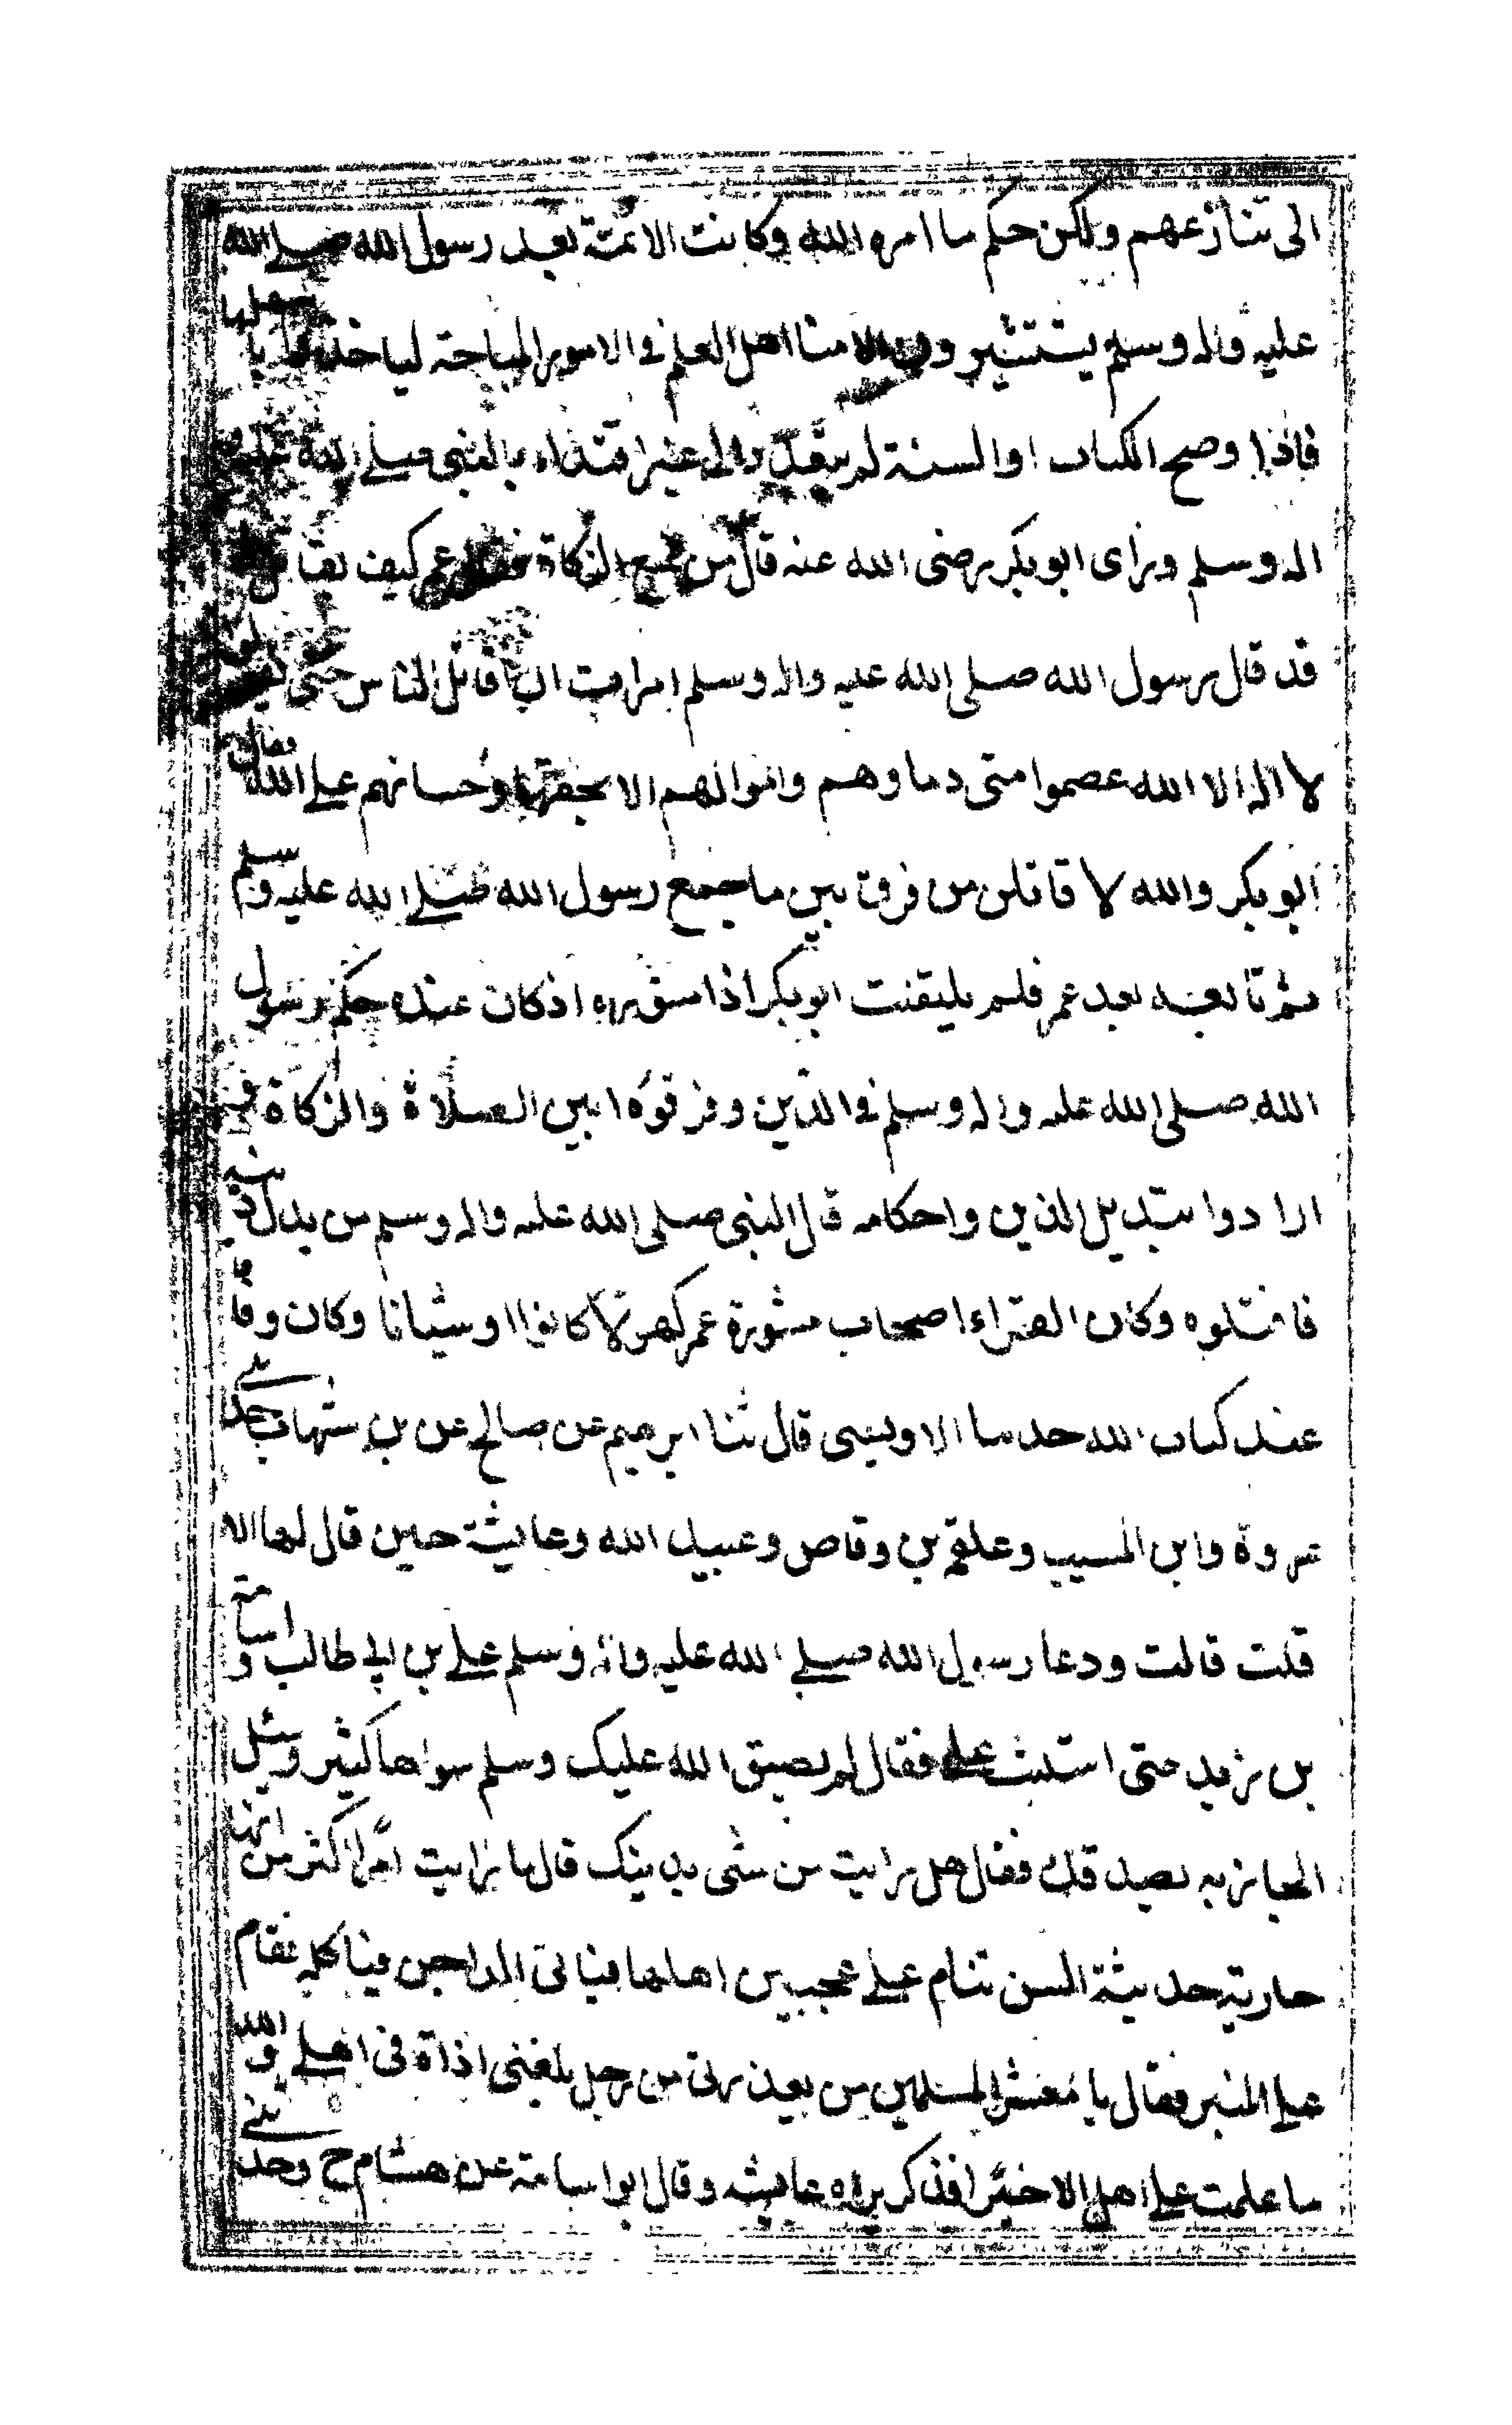 الى تنازعهم ولكن حكم ما امره الله وكانت الائمة بعد رسول الله صلى الله
عليه واله وسلم يستشيرون الامنا اهل العلم في الامور المباحة لياخذوا باسهلها
فاذا وضح الكتاب او السنة لم يتعدوه الى غيره اقتداء بالنبي صلى الله عليه
اله وسلم وراى ابو بكر رضى الله عنه قال من منع الزكاة فقال عمر كيف تقاتل
قد قال رسول الله صلى الله عليه واله وسلم امرت ان اقاتل الناس حتى يقولوا
لا اله الا الله عصموا منى دماوهم واموالهم الا بحقها وحسابهم على الله فقال
ابو بكر والله لا قاتلن من فرق بين ما جمع رسول الله صلى الله عليه وسلم
ثم تابعه بعد عمر فلم يليتفت ابو بكر اذا مشوره اذ كان عنده حكم رسول
الله صلى الله عليه واله وسلم في الذين وفرقوا بين الصلاة والزكاة
ارادوا تبديل الدين واحكامه قال النبي صلى الله عليه واله وسلم من بدل دينه
فاقتلوه وكان القراء اصحاب مشورة عمر كهولا كانوا او شبانا وكان وقافا
عند كتاب الله حدثنا الاويسى قال ثنا ابرهيم عن صالح عن بن شهاب حدثنى
عروة وابن المسيب وعلقمة بن وقاص وعبيد الله وعايشة حين قال لها الا
قلت قالت ودعا رسول الله صلى الله عليه واله وسلم على بن ابى طالب واسامة
بن زيد حتى استلبث عليه فقال لم يضيق الله عليك وسلم سواها كثير وسئل
الجاريه تصدقك فقال هل رايت من شى يريبك قال ما رايت امرا اكثر من انها
جارية حديثة السن تنام على عجين اهلها فياتى الداجن فيا كله فقام
على المنبر فقال يا معشر المسلمين من يعذرنى من رجل بلغنى اذاة فى اهلى والله
ما علمت على اهلى الا خيرا فذكر براه عايشه وقال ابو اسامة عن هشام ح وحدثنى